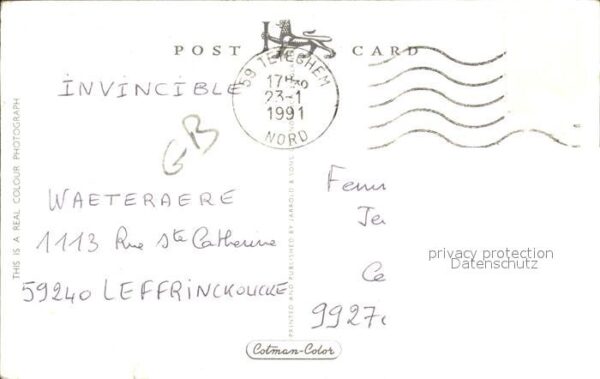 POST CARD
59 TETEGHEM
17H30
23-1
1991
NORD
INVINCIBLE
GB
WAETERAERE
1113 Rue Ste Catherine
59240 LEFFRINCKOUCKE
Je
Ce
9927
privacy protection
Datenschutz
THIS IS A REAL COLOUR PHOTOGRAPH
PRINTED AND PUBLISHED BY JARROLD & SONS
Cotman-Color